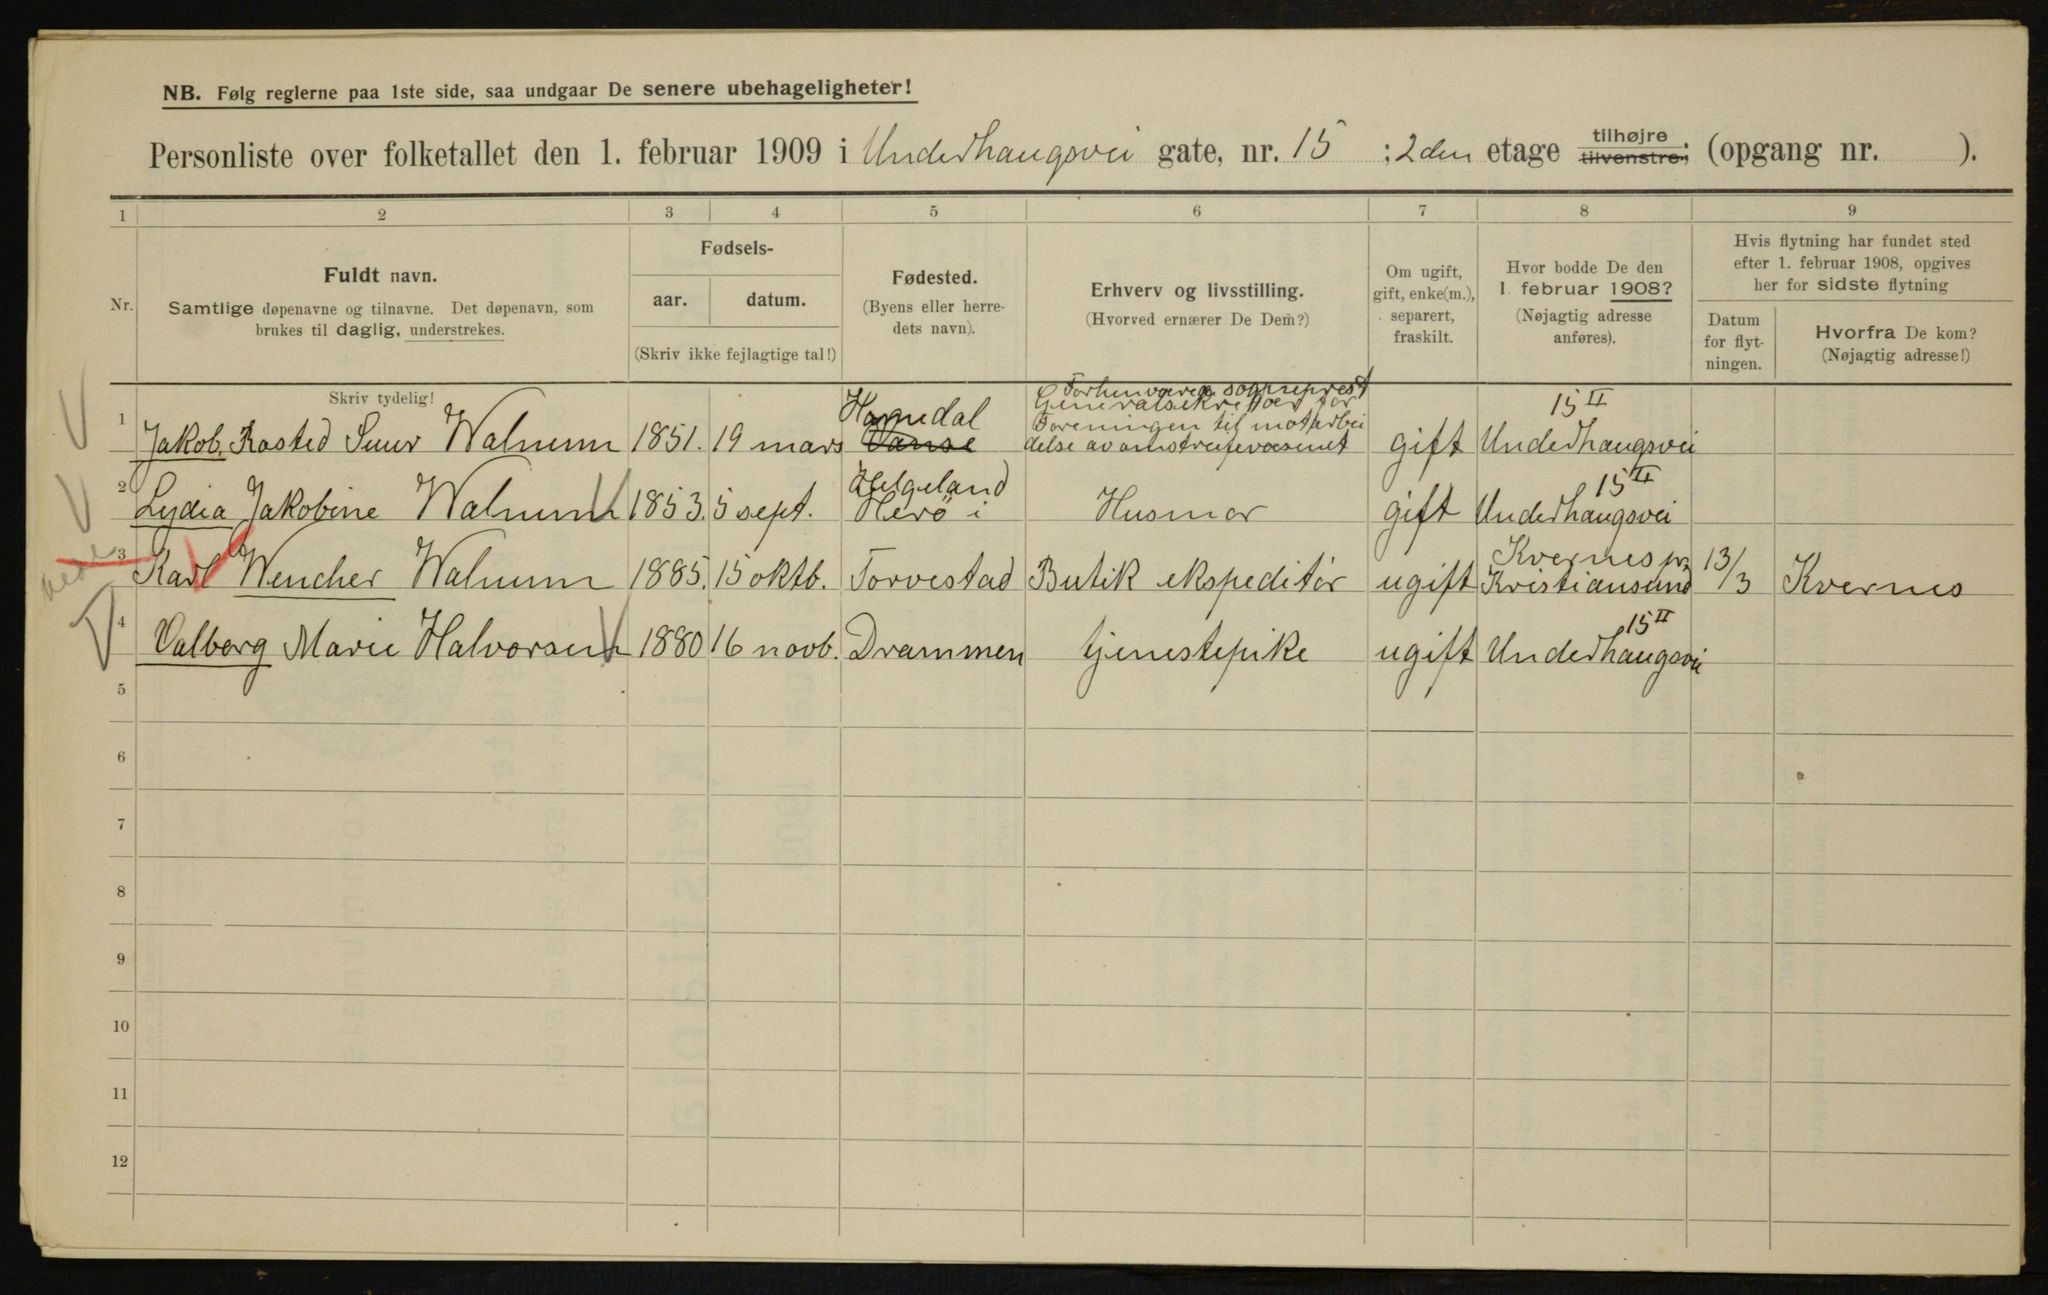 NB. Følg reglerne paa 1ste side, saa undgaar De senere ubehageligheter!
Personliste over folketallet den 1. februar 1909 i Underhaugsvei gate, nr. 15 ; 2den etage tilhøjre tilvenstre; (opgang nr. ).
1 2 3 4 5 6 7 8 9
Nr.
Fuldt navn.
Samtlige døpenavne og tilnavne. Det døpenavn, som
brukes til daglig, understrekes.
Fødsels-
aar. datum.
(Skriv ikke fejlagtige tal!)
Fødested.
(Byens eller herre-
dets navn).
Erhverv og livsstilling.
(Hvorved ernærer De Dem?)
Om ugift,
gift, enke(m.),
separert,
fraskilt.
Hvor bodde De den
1. februar 1908?
(Nøjagtig adresse
anføres).
Hvis flytning har fundet sted
efter 1. februar 1908, opgives
her for sidste flytning
Datum
for flyt-
ningen.
Hvorfra De kom?
(Nøjagtig adresse!)
Skriv tydelig!
Forhenværen sogneprest
Generalsekretær for
Hornedal Foreningen til motarbei 15 II
1 Jakob Rosted Suur Walnum 1851. 19 mars Vanse delse av omstreifervæsenet gift Underhaugsvei
Helgeland 15 II
2 Lydia Jakobine Walnum 1853. 5 sept. Herö i Husmor gift Underhaugsvei
Kvernes pr.
3 Karl Wencher Walnum 1885. 15 oktb. Torvestad Butik ekspeditör ugift Kristiansund 13/3 Kvernes
15 II
4 Valborg Marie Halvorsen 1880 16 novb. Drammen tjenestepike ugift Underhaugsvei
5
6
7
8
9
10
11
12